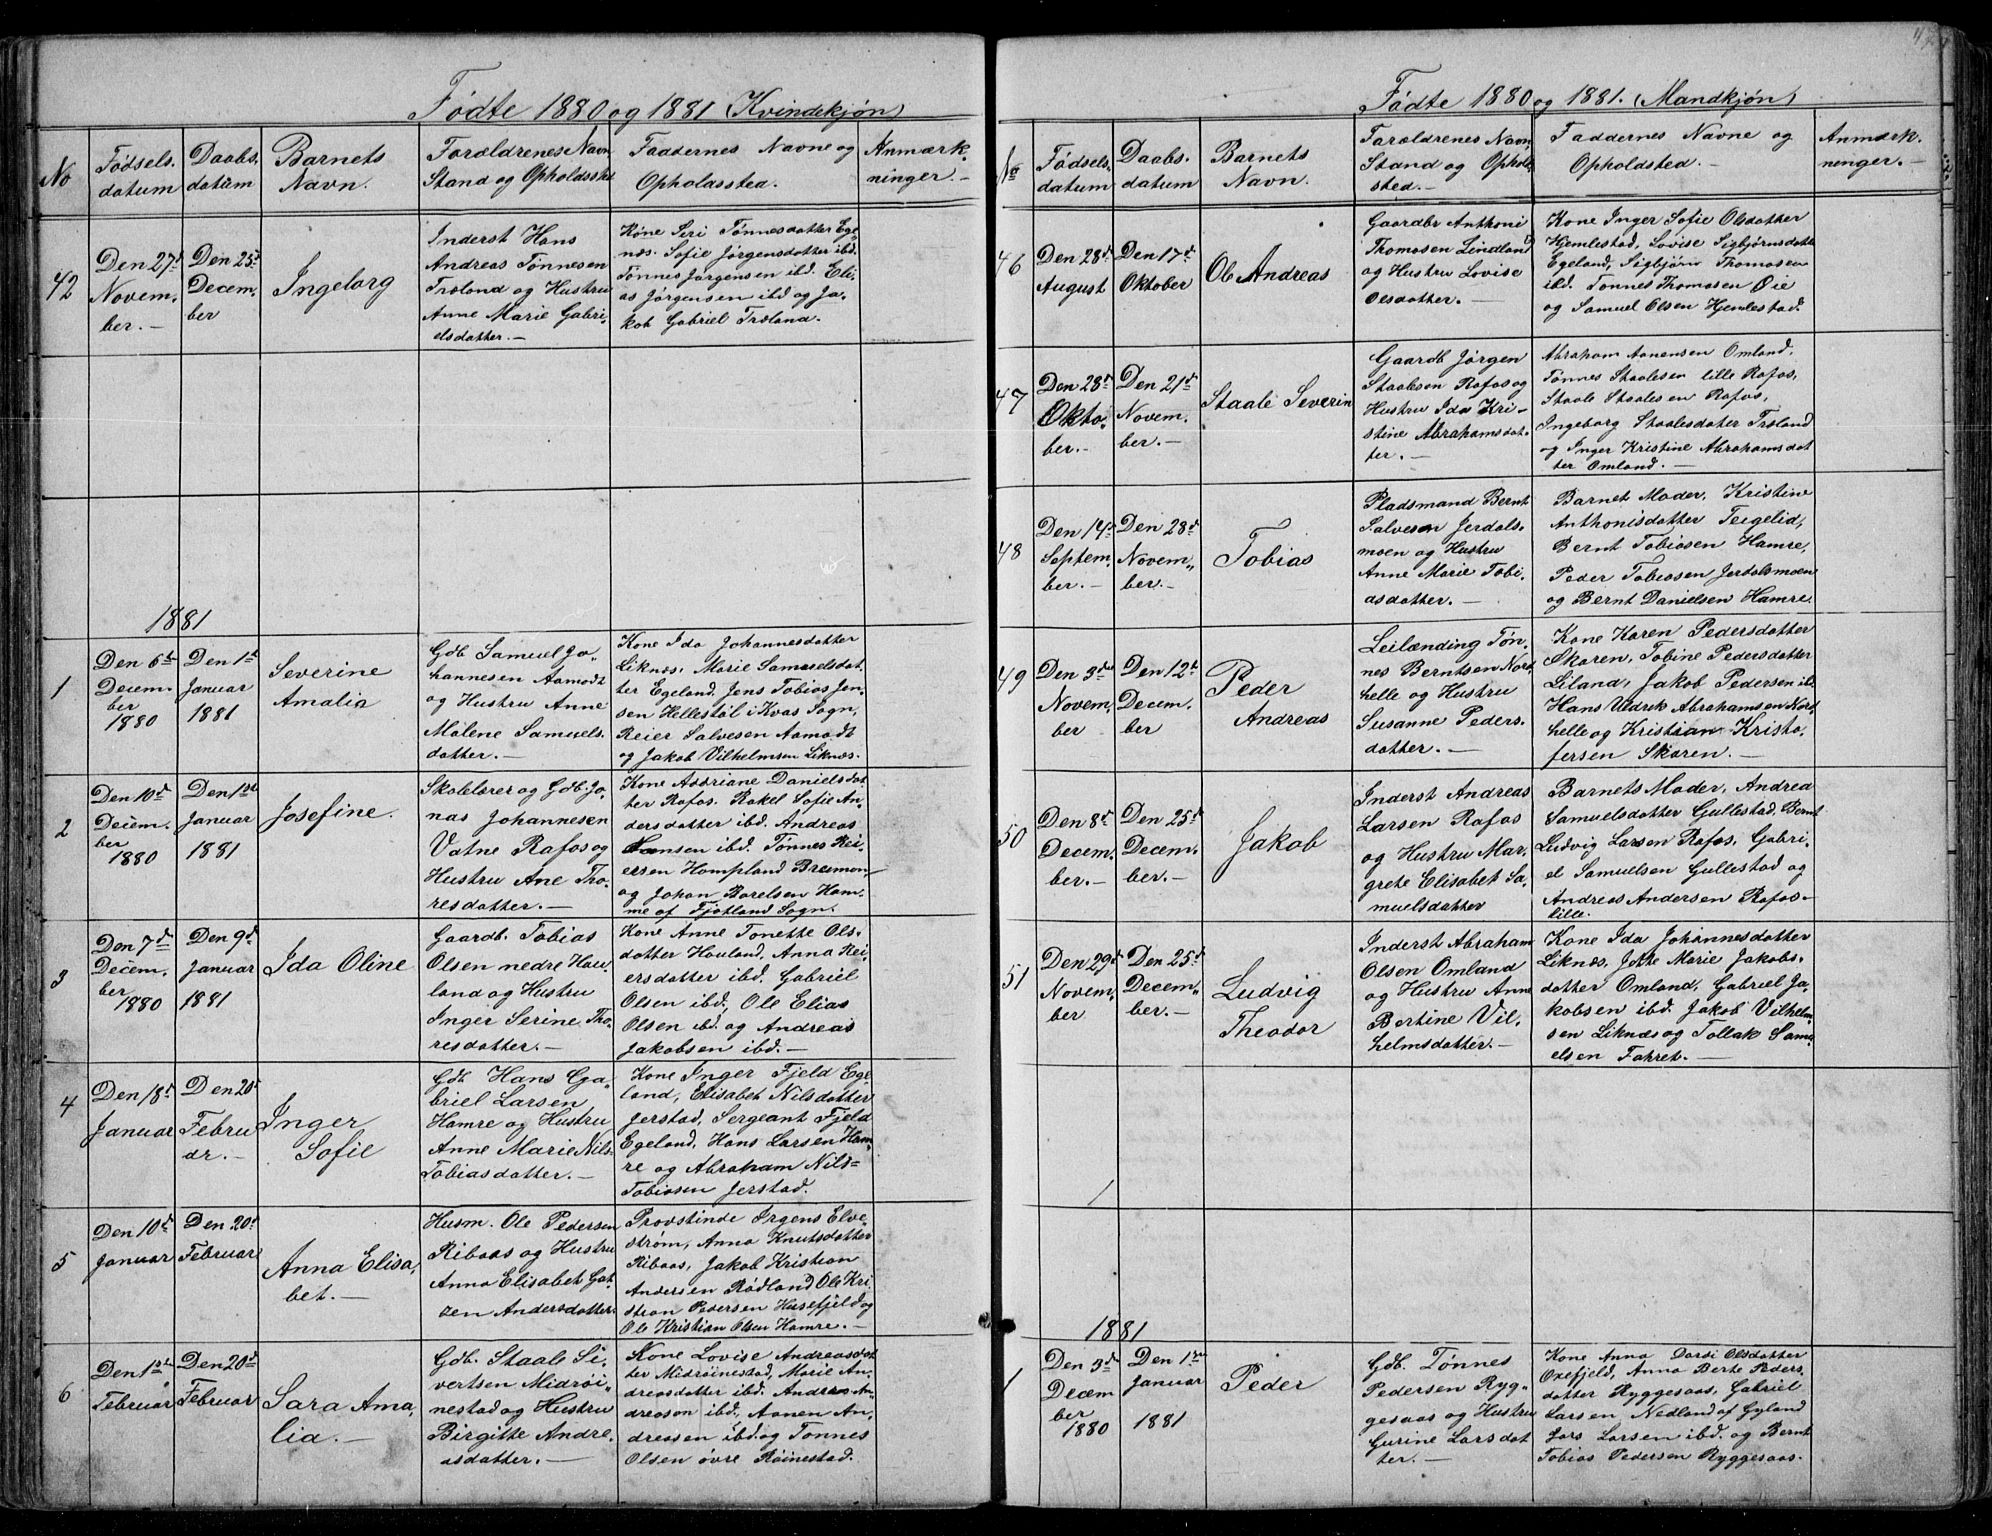 Fødte 1880 og 1881 (Kvindekjøn)
No
Fødsels-
datum
Daabs-
datum
Barnets
Navn.
Forældrenes Navn
Stand og Opholdssted
Faddernes Navne og
Opholdssted.
Anmærk-
ninger. -
42
Den 27d
Novem-
ber. -
Den 25d
Decem-
ber
Ingeborg
Inderst Hans
Andreas Tønnesen
Træland og Hustru
Anne Marie Gabri-
elsdatter. -
Kone Seri Tønnesdatter Ege-
næs. Sofie Jørgensdatter ibd.
Tønnes Jørgensen ibd. Eli-
as Jørgensen ibd og Ja-
kob Gabriel Træland.
1881
1
Den 6te
Decem-
ber
1880
Den 1st
Januar
1881
Severine
Amalia
Gdb Samuel Jo-
hannesen Aamodt
og Hustru Anne
Malene Samuels-
datter. -
Kone Ida Johannesdatter
Liknæs. Marie Samuelsdat-
ter Egeland. Jens Tobias Jen-
sen Hellestøl i Kvas Sogn,
Reier Salvesen Aamodt
og Jakob Vilhelmsen Liknæs.
2
Den 10d
Decem-
ber
1880
Den 1ste
Januar
1881
Josefine.
Skolelærer og Gdb. Jo-
nas Johannesen
Vatne Rafos og
Hustru Ane Tho-
resdatter. -
Kone Adriane Danielsdat-
ter Rafos. Rakel Sofie An-
dersdatter ibd. Andreas
Hansen ibd. Tønnes Rei-
ersen Hompland Bremon-
og Johan Borelsen Ham-
me af Fjotland Sogn.
3
Den 7d
Decem-
ber
1880
Den 9d
Januar
1881
Ida Oline
Gaardb. Tobias
Olsen nedre Hau-
land og Hustru
Inger Serine Tho-
resdatter. -
Kone Anne Tonette Ols-
datter Hauland, Anna Rei-
ersdatter ibd. Gabriel
Olsen ibd, Ole Elias
Olsen ibd og Andreas
Jakobsen ibd. -
4
Den 18d
Januar
Den 20d
Febru
ar. -
Inger
Sofie
Gdb Hans Ga-
briel Larsen
Hamre og Hustru
Anne Marie Nils-
Tobiasdatter. -
Kone Inger Fjeld Ege-
land, Elisabet Nilsdatter
Jerstad, Sergeant Fjeld
Egeland, Hans Larsen Ham-
re og Abraham Nils=
Tobiasen Jerstad.
5
Den 10d
Januar
Den 20d
Februar
Anna Elisa-
bet. -
Husm. Ole Pedersen
Ribaas og Hustru
Anna Elisabet Gat-
zen Andersdatter.
Provstinde Jrgens Elve-
strøm, Anna Knutsdatter
Ribaas, Jakob Kristian
Andersen Rødland Ole Kri-
stian Pedersen Husefjeld og
Ole Kristian Olsen Hamre. -
6
Den 1ste
Februar
Den 20d
Februar
Sara Ama-
lia. -
Gdb. Staale Si-
vertsen Midrøi-
nestad og Hustru
Birgitte Andre-
asdatter. -
Kone Lovise Andreasdat-
ter Midrøinestad, Marie An-
dreasdatter ibd. Andreas An-
dreasen ibd., Aanen An-
dreasen ibd. og Tønnes
Olsen övre Røinestad.
Fødte 1880 og 1881. (Mandkjøn)
No
Fødsels-
datum
Daabs-
datum
Barnets
Navn.
Forældrenes Navn,
Stand og Ophold-
sted. -
Faddernes Navne og
Opholdsted. -
Anmærk-
ninger. -
46
Den 28d
August
Den 17d
Oktober
Ole Andreas
Gaardbr Anthoni
Thomasen Lindland
og Hustru Lovise
Olsdatter. -
Kone Inger Sofie Olsdatter
Hjemlestad, Lovise Sigbjørnsdatter
Egeland, Sigbjørn Thomasen
ibd. Tønnes Thomasen Øie
og Samuel Olsen Hjemlestad.
47
Den 28d
Okto-
ber. -
Den 21d
Novem-
ber. -
Staale Severin
Gaardb Jørgen
Staalesen Rafos og
Hustru Ida Kri-
stine Abrahamsdat-
ter. -
Abraham Aanensen Omland.
Tønnes Staalesen lille Rafos,
Staale Staalesen Rafos,
Ingeborg Staalesdatter Træland
og Inger Kristine Abrahamsdat
ter Omland. -
48
Den 14d
Septem-
ber. -
Den 28d
Novem-
ber. -
Tobias
Pladsmand Bernt
Salvesen Jerdals-
moen og Hustru
Anne Marie Tobi-
asdatter. -
Barnet Moder, Kristine
Anthonisdatter Teigelid,
Bernt Tobiasen Hamre,
Peder Tobiasen Jerdalsmoen
og Bernt Danielsen Hamre
49
Den 3die
Novem-
ber
Den 12d
Decem-
ber
Peder
Andreas
Leilænding Tøn-
nes Berntsen Nord-
helle og Hustru
Susanne Peders-
datter. -
Kone Karen Pedersdatter
Skaren, Tobine Pedersdatter
Liland, Jakob Pedersen ibd
Hans Uldrik Abrahamsen Nord-
helle og Kristian Kristo-
fersen Skaren. -
50
Den 8d
Decem-
ber. -
Den 25d
Decem-
ber. -
Jakob
Inderst Andreas
Larsen Rafos
og Hustru Mar-
grete Elisabet Sa-
muelsdatter
Barnets Moder, Andrea
Samuelsdatter Gullestad, Bernt
Ludvig Larsen Rafos, Gabri-
el Samuelsen Gullestad og
Andreas Andersen Rafos-
lille.
51
Den 29d
Novem-
ber
Den 25d
Decem-
ber. -
Ludvig
Theodor
Inderst Abraham
Olsen Omland
og Hustru Anne
Bertine Vil-
helmsdatter. -
Kone Ida Johannesdatter
Liknæs. Jette Marie Jakobs-
datter Omland, Gabriel Ja-
kobsen ibd. Jakob Vilhelm-
sen Liknæs og Tollak Samu-
elsen Fahret. -
1881
1
Den 3d
Decem
ber
1880
Den 1ste
Januar
1881
Peder
Gdb. Tønnes
Pedersen Ryg-
gesaas og Hustru
Gurine Larsdat
ter. -
Kone Anna Dorde Olsdatter
Oxefjeld, Anna Berte Peders-
datter Ryggesaas, Gabriel
Larsen Nedland af Gyland
Lars Larsen ibd. og Bernt
Tobias Pedersen Ryggesaas.